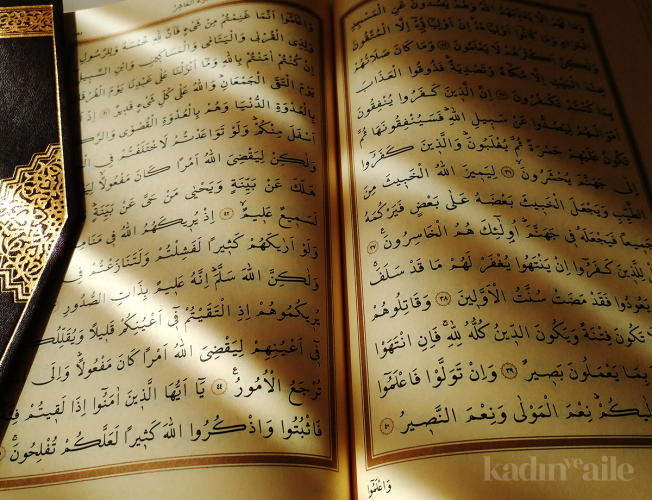 وَمَا لَهُمْ اَلَّا يُعَذِّبَهُمُ اللّٰهُ وَهُمْ يَصُدُّونَ عَنِ الْمَسْجِدِ
الْحَرَامِ وَمَا كَانُٓوا اَوْلِيَٓاءَهُۜ اِنْ اَوْلِيَٓاؤُ۬هُٓ اِلَّا الْمُتَّقُونَ
وَلٰكِنَّ اَكْثَرَهُمْ لَا يَعْلَمُونَ ٣٤ وَمَا كَانَ صَلَاتُهُمْ
عِنْدَ الْبَيْتِ اِلَّا مُكَٓاءً وَتَصْدِيَةًۜ فَذُوقُوا الْعَذَابَ
بِمَا كُنْتُمْ تَكْفُرُونَ ٣٥ اِنَّ الَّذِينَ كَفَرُوا يُنْفِقُونَ
اَمْوَالَهُمْ لِيَصُدُّوا عَنْ سَبِيلِ اللّٰهِۜ فَسَيُنْفِقُونَهَا ثُمَّ
تَكُونُ عَلَيْهِمْ حَسْرَةً ثُمَّ يُغْلَبُونَۜ وَالَّذِينَ كَفَرُٓوا
اِلٰى جَهَنَّمَ يُحْشَرُونَۙ ٣٦ لِيَمِيزَ اللّٰهُ الْخَبِيثَ مِنَ
الطَّيِّبِ وَيَجْعَلَ الْخَبِيثَ بَعْضَهُ عَلٰى بَعْضٍ فَيَرْكُمَهُ
جَمِيعًا فَيَجْعَلَهُ فِي جَهَنَّمَۜ اُو۬لٰٓئِكَ هُمُ الْخَاسِرُونَ۟ ٣٧
لِلَّذِينَ كَفَرُٓوا اِنْ يَنْتَهُوا يُغْفَرْ لَهُمْ مَا قَدْ سَلَفَۚ
يَعُودُوا فَقَدْ مَضَتْ سُنَّتُ الْاَوَّلِينَ ٣٨ وَقَاتِلُوهُمْ
لَا تَكُونَ فِتْنَةٌ وَيَكُونَ الدِّينُ كُلُّهُ لِلّٰهِۚ فَاِنِ انْتَهَوْا
بِمَا يَعْمَلُونَ بَصِيرٌ ٣٩ وَاِنْ تَوَلَّوْا فَاعْلَمُٓوا
مَوْلٰيكُمْۜ نِعْمَ الْمَوْلٰى وَنِعْمَ النَّصِيرُ ٤٠
وَاعْلَمُٓوا
وَاعْلَمُٓوا اَنَّمَا غَنِمْتُمْ مِنْ شَيْءٍ فَاَنَّ لِلّٰهِ خُمُسَهُ وَلِلرَّسُولِ
وَلِذِي الْقُرْبٰى وَالْيَتَامٰى وَالْمَسَاكِينِ وَابْنِ السَّبِيلِۙ
اِنْ كُنْتُمْ اٰمَنْتُمْ بِاللّٰهِ وَمَٓا اَنْزَلْنَا عَلٰى عَبْدِنَا يَوْمَ الْفُرْقَانِ
يَوْمَ الْتَقَى الْجَمْعَانِۜ وَاللّٰهُ عَلٰى كُلِّ شَيْءٍ قَدِيرٌ ٤١ اِذْ
بِالْعُدْوَةِ الدُّنْيَا وَهُمْ بِالْعُدْوَةِ الْقُصْوٰى وَالرَّكْبُ
اَسْفَلَ مِنْكُمْۜ وَلَوْ تَوَاعَدْتُمْ لَاخْتَلَفْتُمْ فِي
وَلٰكِنْ لِيَقْضِيَ اللّٰهُ اَمْرًا كَانَ مَفْعُولًاۙ
هَلَكَ عَنْ بَيِّنَةٍ وَيَحْيٰى مَنْ حَيَّ عَنْ بَيِّنَةٍۜ
لَسَمِيعٌ عَلِيمٌۙ ٤٢ اِذْ يُرِيكَهُمُ اللّٰهُ فِي مَنَامِكَ
وَلَوْ اَرٰيكَهُمْ كَثِيرًا لَفَشِلْتُمْ وَلَتَنَازَعْتُمْ فِي
وَلٰكِنَّ اللّٰهَ سَلَّمَۜ اِنَّهُ عَلِيمٌ بِذَاتِ الصُّدُورِ
يُرِيكُمُوهُمْ اِذِ الْتَقَيْتُمْ فِٓي اَعْيُنِكُمْ قَلِيلًا وَيُقَلِّلُكُمْ
فِٓي اَعْيُنِهِمْ لِيَقْضِيَ اللّٰهُ اَمْرًا كَانَ مَفْعُولًاۜ وَاِلَى
تُرْجَعُ الْاُمُورُ۟ ٤٤ يَٓا اَيُّهَا الَّذِينَ اٰمَنُٓوا اِذَا لَقِيتُمْ فِئَةً
فَاثْبُتُوا وَاذْكُرُوا اللّٰهَ كَثِيرًا لَعَلَّكُمْ تُفْلِحُونَۚ
kadın ve aile